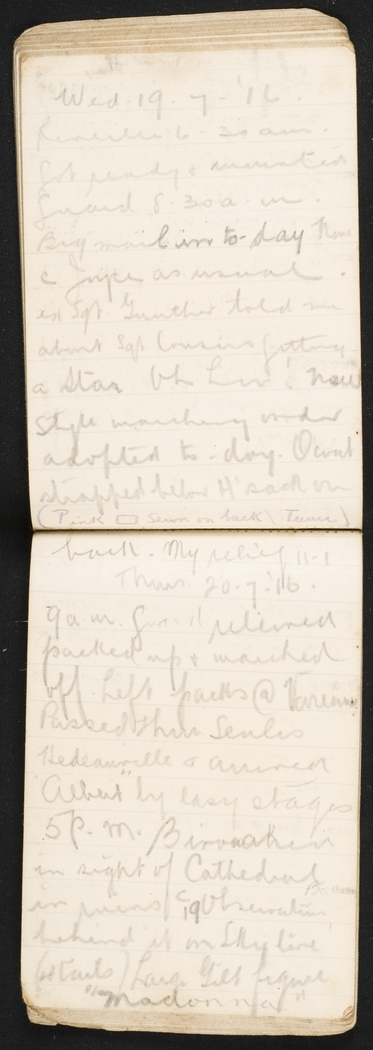 Wed. 19. 7. '16.
Reveille 6. 30 am.
Got ready & mounted
Guard 8. 30 a. m.
Big mail in to-day None
c Joyce as usual.
Sgt. Gunther told me
about Sgt Cousins getting
a Star Oh Lor! New
Style marching order
adopted to-day. O'coat
strapped below H'sack on
(Pink □ Sewn on back Tunic)
back. My relief 11-1
Thurs 20. 7. '16.
9 a.m. Guard relieved
packed up & marched
off. Left packs @
Passed thru Senlis
Hedeauville & arrived
"Albert" by easy stages
5 P. M. Bivouaked
in sight of Cathedral
in ruins c 19 Observation
behind it on Sky line
Large Gilt figure
"Madonna"